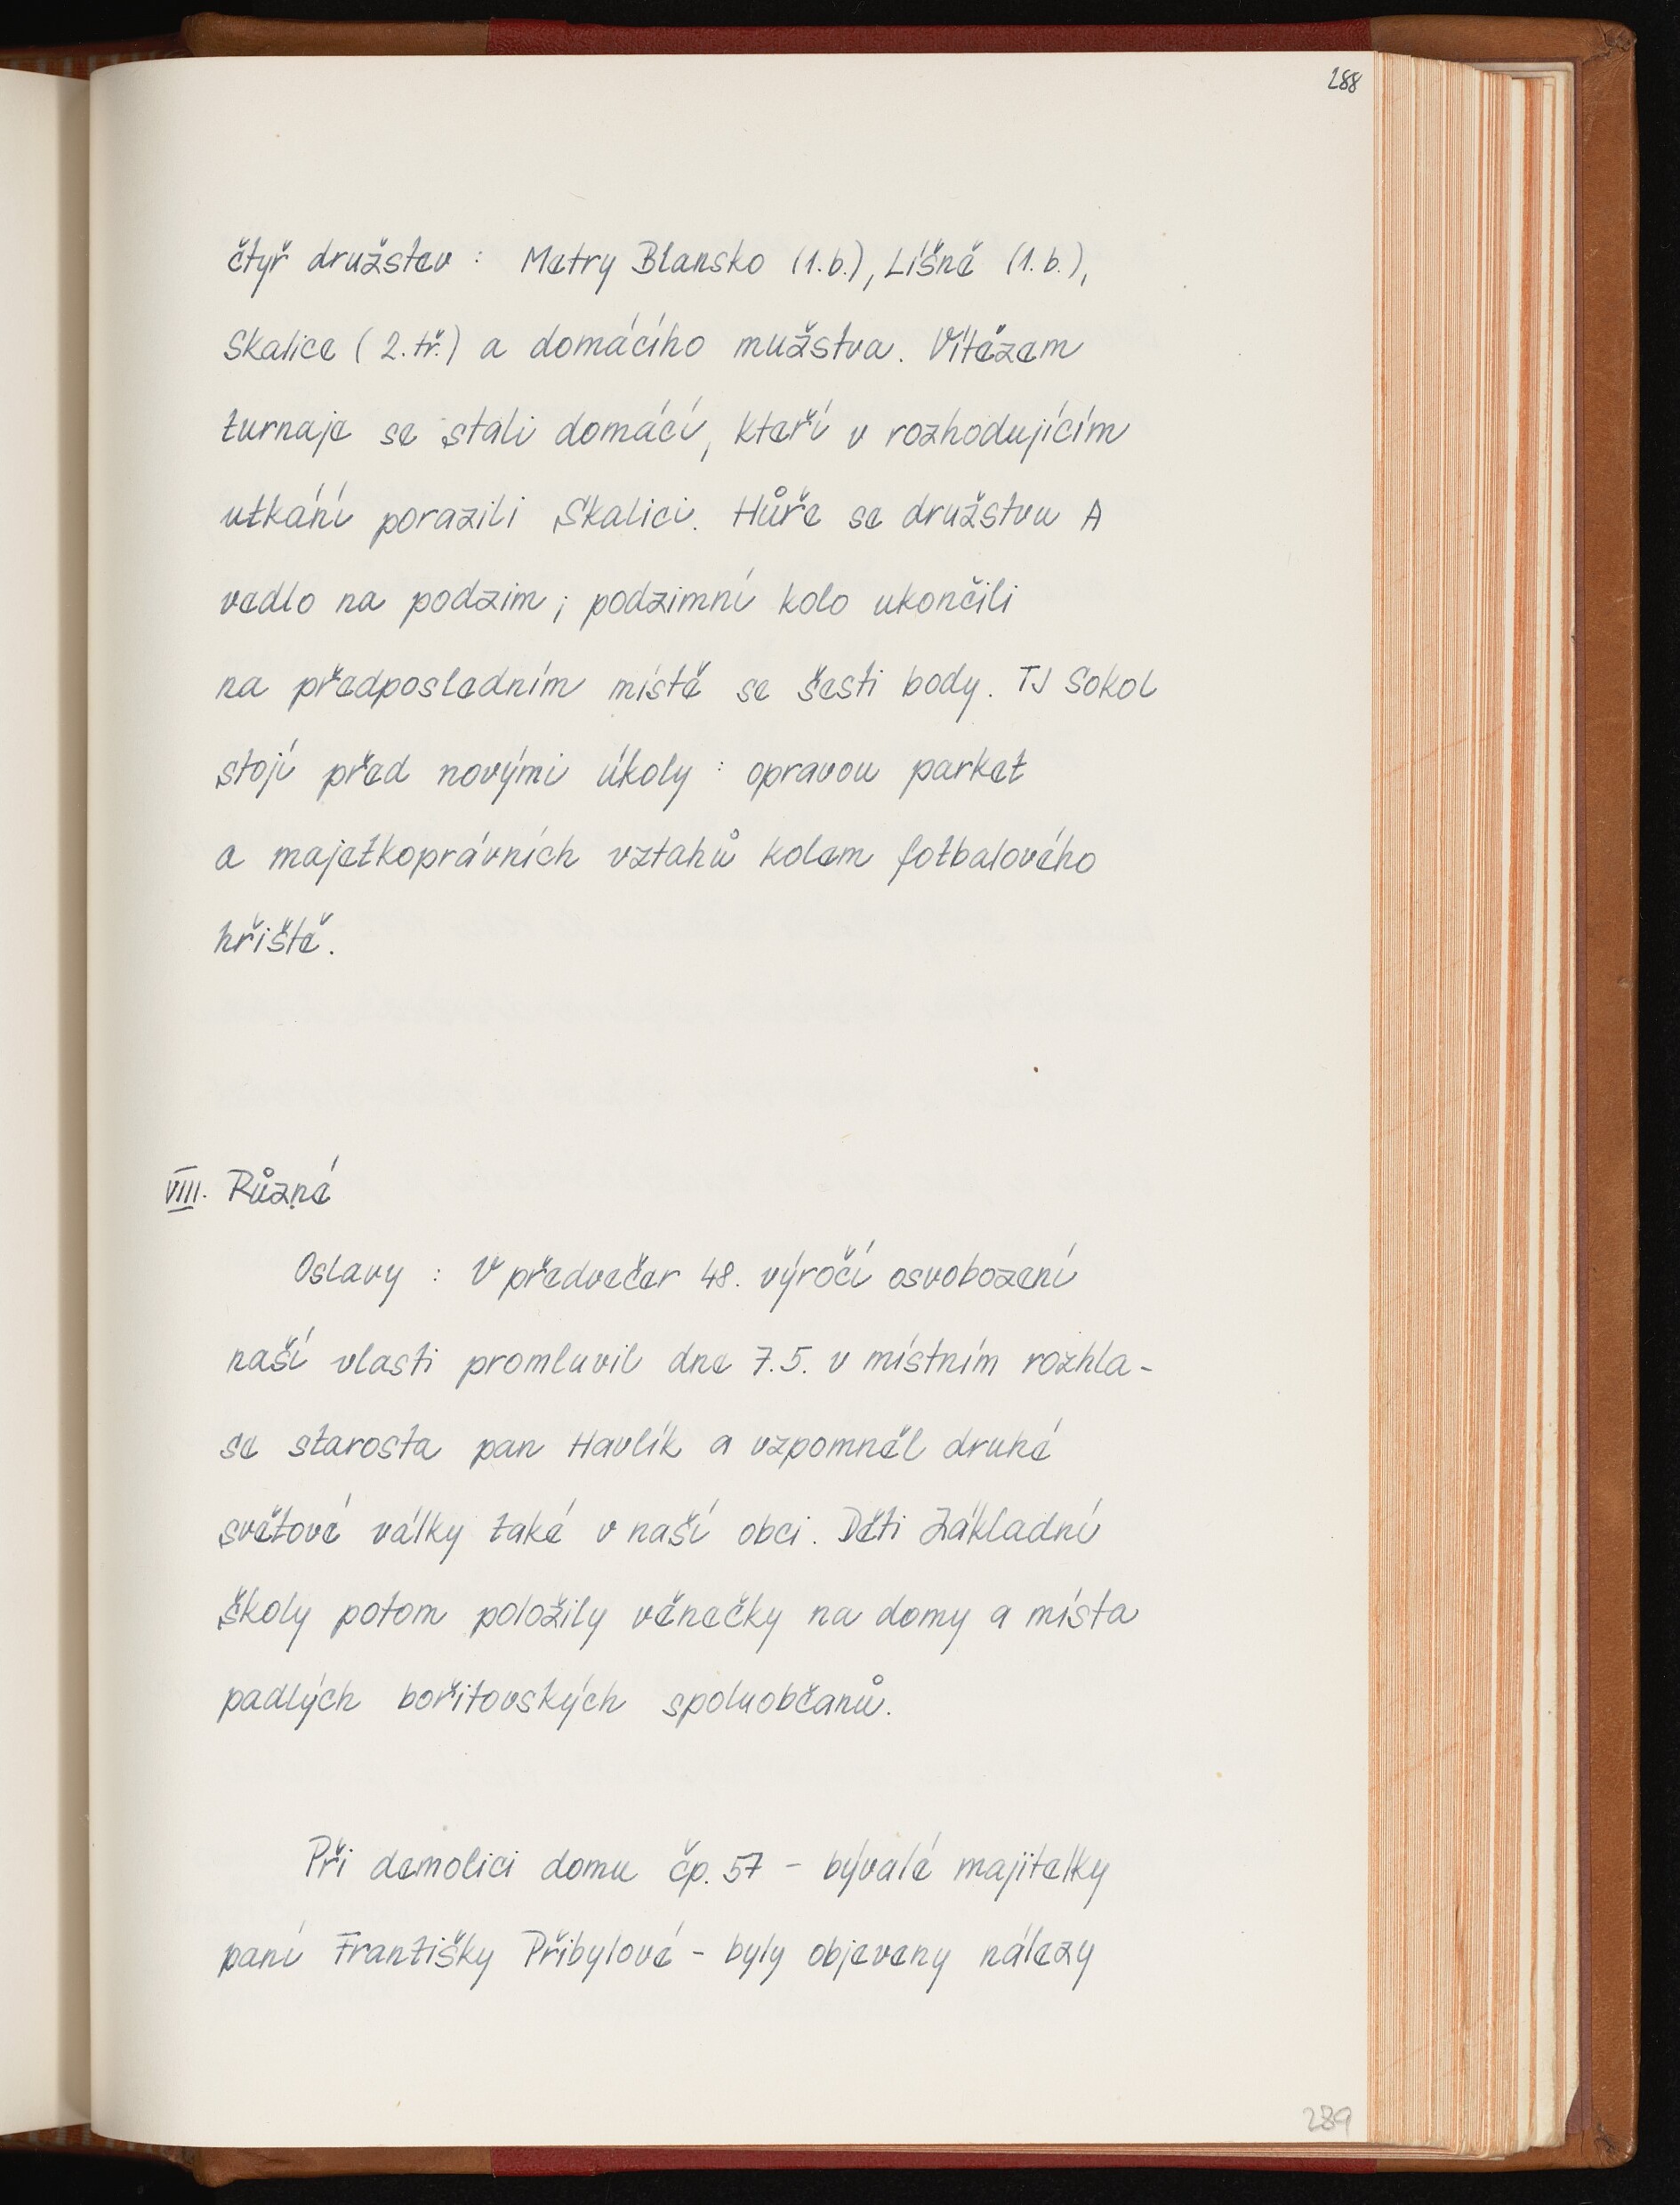 288
čtyř družstev : Metry Blansko (1.b.), Líšně (1.b.),
Skalice (2.tř.) a domácího mužstva. Vítězem
turnaje se stali domácí, kteří v rozhodujícím
utkání porazili Skalici. Hůře se družstvu A
vedlo na podzim; podzimní kolo ukončili
na předposledním místě se šesti body. TJ Sokol
stojí před novými úkoly : opravou parket
a majetkoprávních vztahů kolem fotbalového
hřiště.
VIII. Různé
Oslavy : V předvečer 48. výročí osvobození
naší vlasti promluvil dne 7.5. v místním rozhla-
se starosta pan Havlík a vzpomněl druhé
světové války také v naší obci. Děti Základní
školy potom položily věnečky na domy a místa
padlých bořitovských spoluobčanů.
Při demolici domu čp. 57 - bývalé majitelky
paní Františky Přibylové - byly objeveny nálezy
289